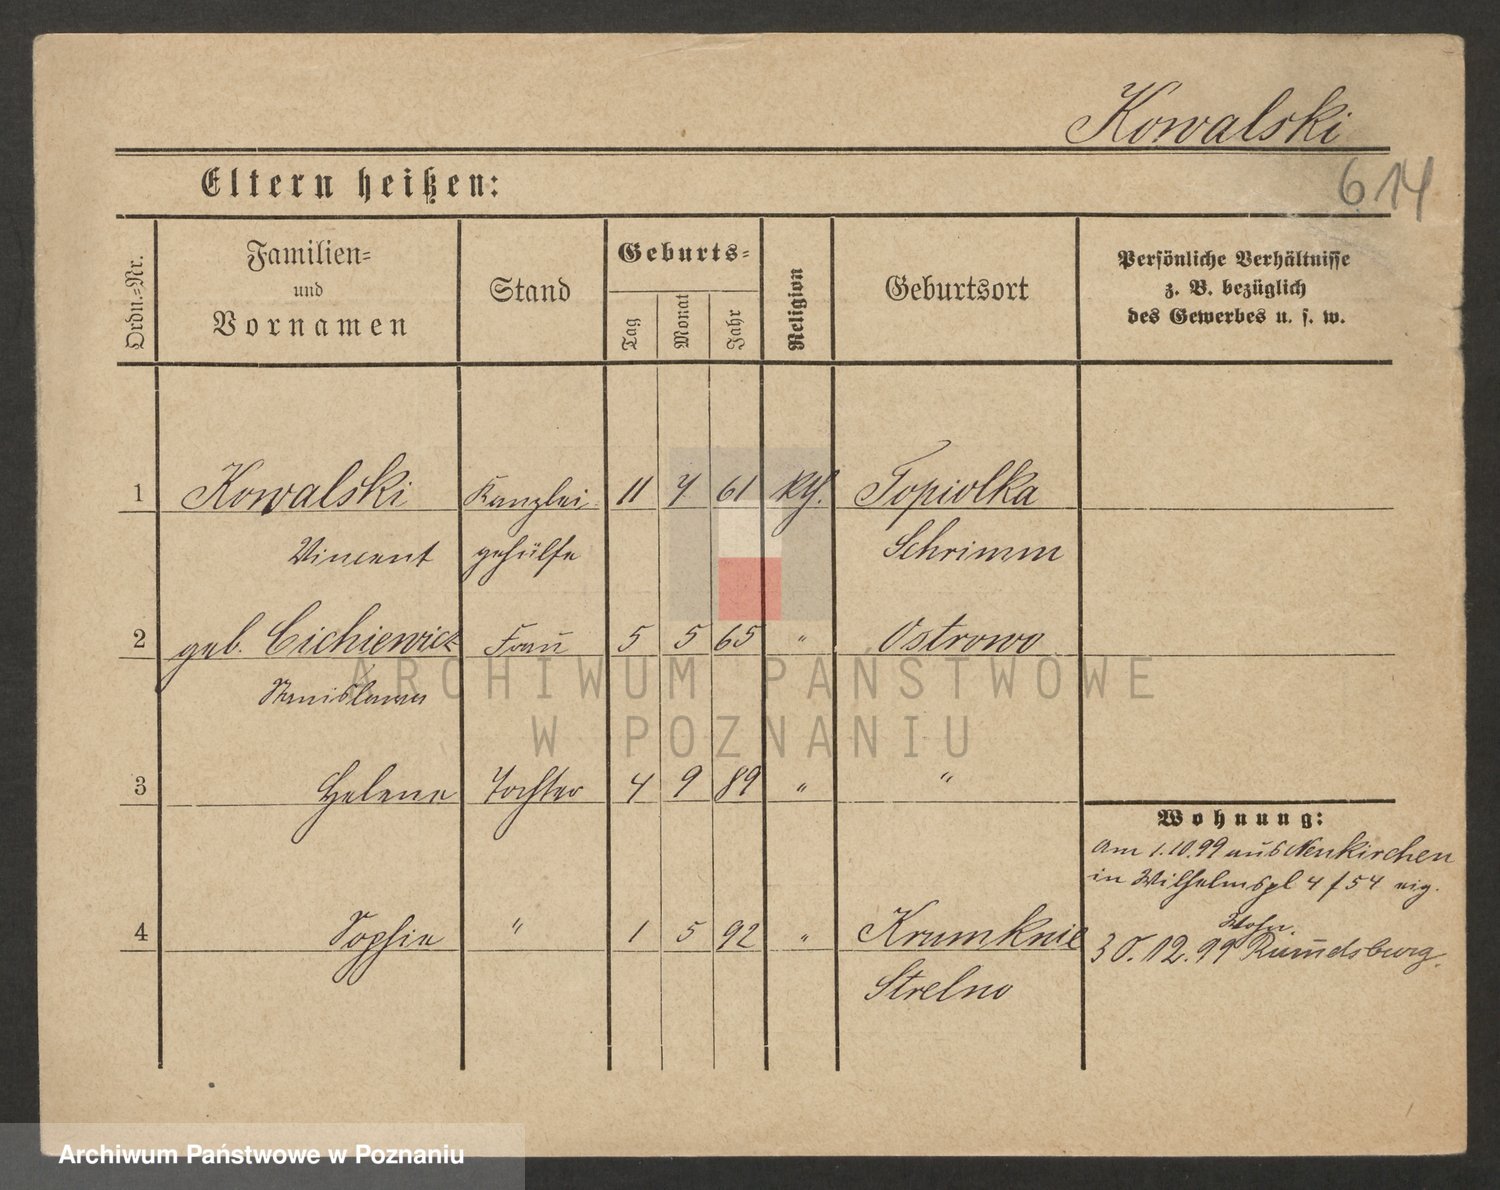 Kowalski
614
Eltern heißen:
Ordn.-Nr.
Familien-
und
Vornamen
Stand
Geburts-
Tag
Monat
Jahr
Religion
Geburtsort
Persönliche Verhältnisse
z. B. bezüglich
des Gewerbes u. s. w.
1 Kowalski Kanzlei- 11 7 61 Topiolka
Vincent gehülfe Schrimm
2 geb. Cichiewicz Frau 5 5 65 " Ostrowo
Stanislawa
ARCHIWUM PAŃSTWOWE
W POZNANIU
3 Helene Tochter 4 9 89 " "
Wohnung:
am 1.10.99 aus Neukirchen
in Wilhelmspl 4 / 54 eig.
Wohn.
4 Sophie " 1 5 92 " Krumknie
Strelno
30.12.99 Rumdsburg.
Archiwum Państwowe w Poznaniu